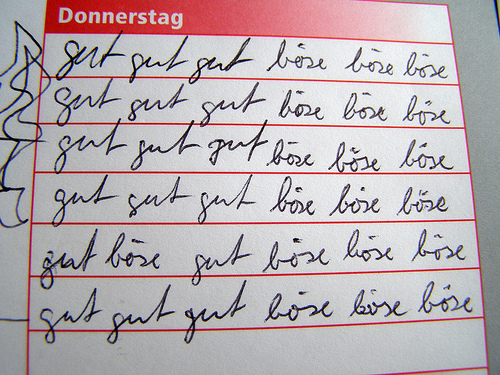 Donnerstag
gut gut gut böse böse böse
gut gut gut böse böse böse
gut gut gut böse böse böse
gut gut gut böse böse böse
gut böse gut böse böse böse
gut gut gut böse böse böse